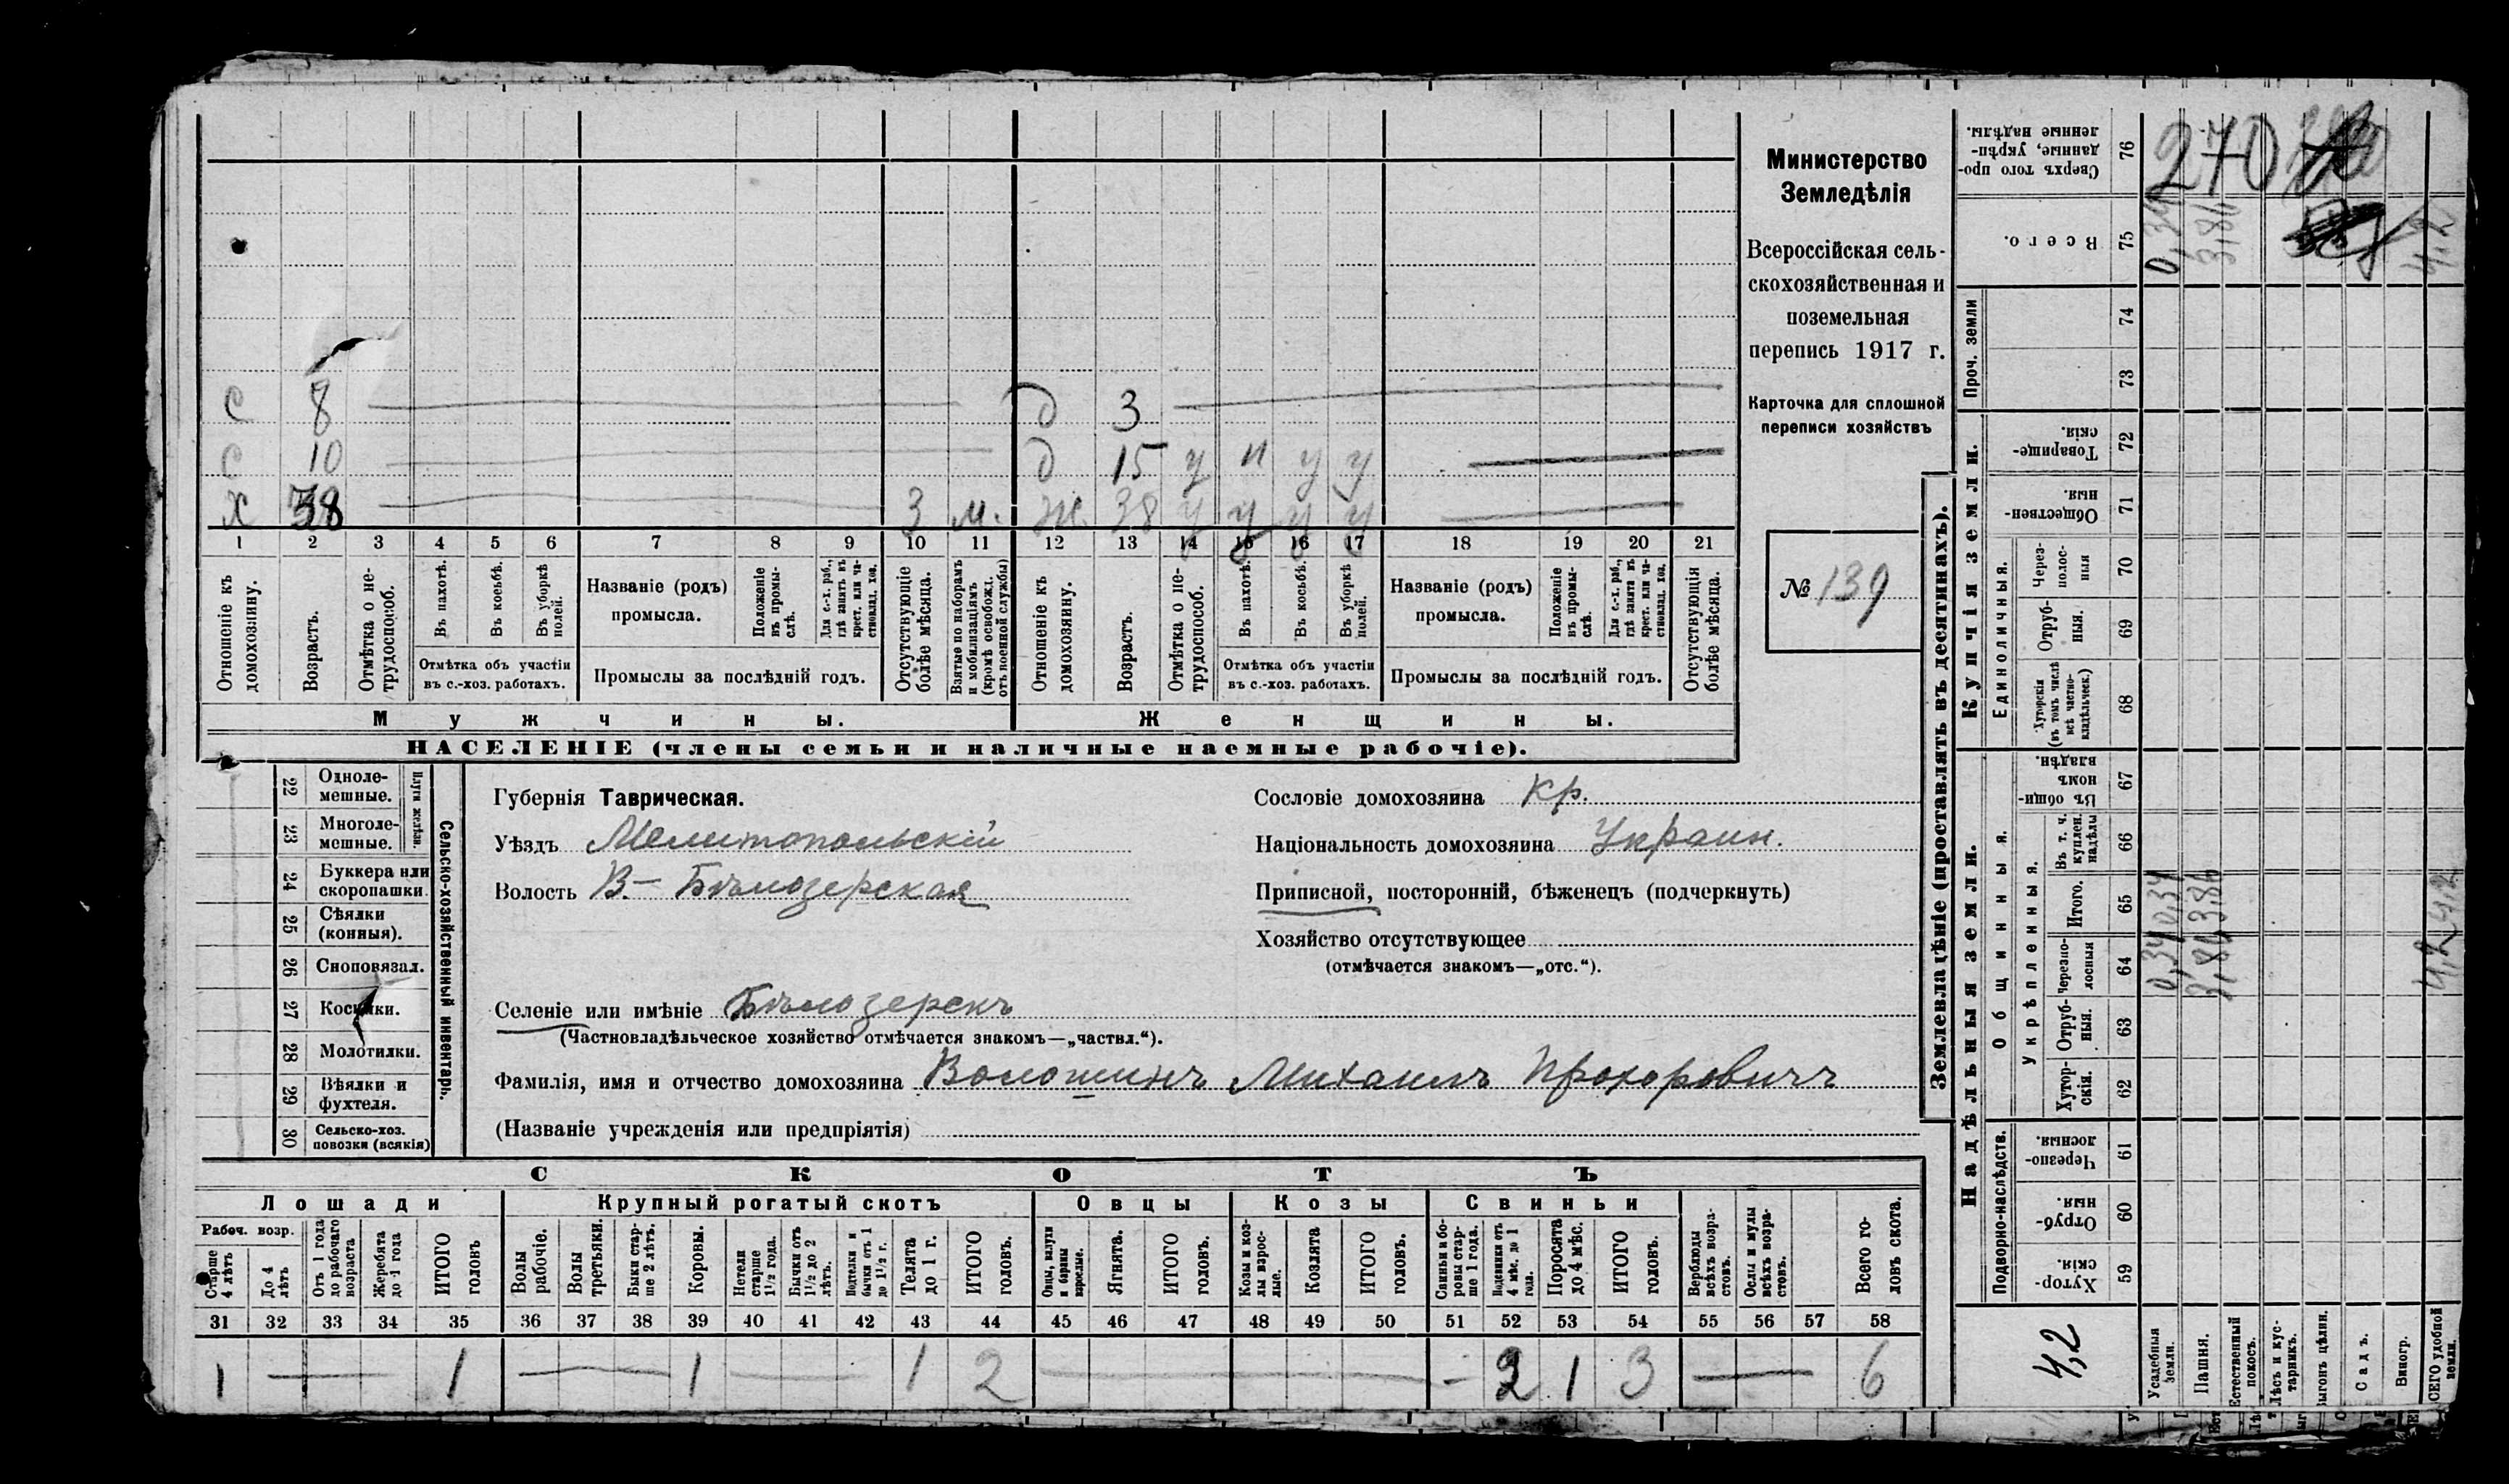 с 8 д 3
с 10 д 15 у н у у
х 38 3 м. ж. 38 у у у у
1 2 3 4 5 6 7 8 9 10 11 12 13 14 15 16 17 18 19 20 21
Отношеніе къ домохозяину.
Возрастъ.
Отмѣтка о не-трудоспособ.
Въ пахотѣ.
Въ косьбѣ.
Въ уборкѣ полей.
Отмѣтка объ участіи
въ с.-хоз. работахъ.
Названіе (родъ)
промысла.
Положеніе въ промы-слѣ.
Для с.-х. раб., гдѣ занятъ въ крест. или ча-стновлад. хоз.
Промыслы за послѣдній годъ.
Отсутствующіе болѣе мѣсяца.
Взятые по наборамъ и мобилизаціямъ (кромѣ освобожд. отъ военной службы)
Отношеніе къ домохозяину.
Возрастъ.
Отмѣтка о не-трудоспособ.
Въ пахотѣ.
Въ косьбѣ.
Въ уборкѣ полей.
Отмѣтка объ участіи
въ с.-хоз. работахъ.
Названіе (родъ)
промысла.
Положеніе въ промы-слѣ.
Для с.-х. раб., гдѣ занятъ въ крест. или ча-стновлад. хоз.
Промыслы за послѣдній годъ.
Отсутствующія болѣе мѣсяца.
Мужчины. Женщины.
НАСЕЛЕНІЕ (члены семьи и наличные наемные рабочіе).
Министерство
Земледѣлія
Всероссійская сель-
скохозяйственная и
поземельная
перепись 1917 г.
Карточка для сплошной
переписи хозяйствъ
№ 139
Сельско-хозяйственный инвентарь.
Плуги желѣзн.
22 Одноле-мешные.
23 Многоле-мешные.
24 Буккера или скоропашки.
25 Сѣялки (конныя).
26 Сноповязал.
27 Косилки.
28 Молотилки.
29 Вѣялки и фухтеля.
30 Сельско-хоз. повозки (всякія)
Губернія Таврическая.
Уѣздъ Мелитопольскій
Волость В- Бѣлозерская
Селеніе или имѣніе Бѣлозерскъ
(Частновладѣльческое хозяйство отмѣчается знакомъ—„частвл.“).
Фамилія, имя и отчество домохозяина Волошинъ Михаилъ Прохоровичъ
(Названіе учрежденія или предпріятія)
Сословіе домохозяина кр.
Національность домохозяина Украин.
Приписной, посторонній, бѣженецъ (подчеркнуть)
Хозяйство отсутствующее
(отмѣчается знакомъ—„отс.“).
СКОТЪ
Лошади Крупный рогатый скотъ Овцы Козы Свиньи
Рабоч. возр.
Старше 4 лѣтъ
До 4 лѣтъ
Отъ 1 года до рабочаго возраста
Жеребята до 1 года
ИТОГО головъ
Волы рабочіе.
Волы третьяки.
Быки стар-ше 2 лѣтъ.
Коровы.
Нетели старше 1½ года.
Бычки отъ 1½ до 2 лѣтъ.
Подтелки и бычки отъ 1 до 1½ г.
Телята до 1 г.
ИТОГО головъ.
Овцы, валухи и бараны взрослые.
Ягнята.
ИТОГО головъ.
Козы и коз-лы взрос-лые.
Козлята
ИТОГО головъ.
Свиньи и бо-ровы стар-ше 1 года.
Подсвинки отъ 4 мѣс. до 1 года.
Поросята до 4 мѣс.
ИТОГО головъ.
Верблюды всѣхъ возра-стовъ.
Ослы и мулы всѣхъ возра-стовъ.
Всего го-ловъ скота.
31 32 33 34 35 36 37 38 39 40 41 42 43 44 45 46 47 48 49 50 51 52 53 54 55 56 57 58
1 — 1 — 1 — 1 2 — - 2 1 3 — 6
Землевладѣніе (проставлять въ десятинахъ).
Купчія земли.
Надѣльныя земли.
Сверхъ того про-данные, укрѣп-ленные надѣлы. 76
Всего. 75
Проч. земли
74
73
Товарище-скія. 72
Обществен-ныя. 71
Единоличныя.
Через-полос-ныя 70
Отруб-ныя. 69
Хуторскія (въ томъ числѣ всѣ частно-владѣльческ.) 68
Общинныя.
Въ общин-номъ владѣн. 67
Укрѣпленныя.
Въ т. ч. куплен. надѣлы 66
Итого. 65
Черезпо-лосныя 64
Отруб-ныя. 63
Хутор-скія. 62
Подворно-наслѣдств.
Черезпо-лосныя. 61
Отруб-ныя. 60
Хутор-скія. 59
270
0,34 3,86 4,2
0,34 3,86 4,2
0,34 3,86 4,2
4,2
Усадебныя земли.
Пашня.
Естественный покосъ.
Лѣсъ и кус-тарникъ.
ыгонъ цѣлин.
Садъ.
Виногр.
СЕГО удобной земли.